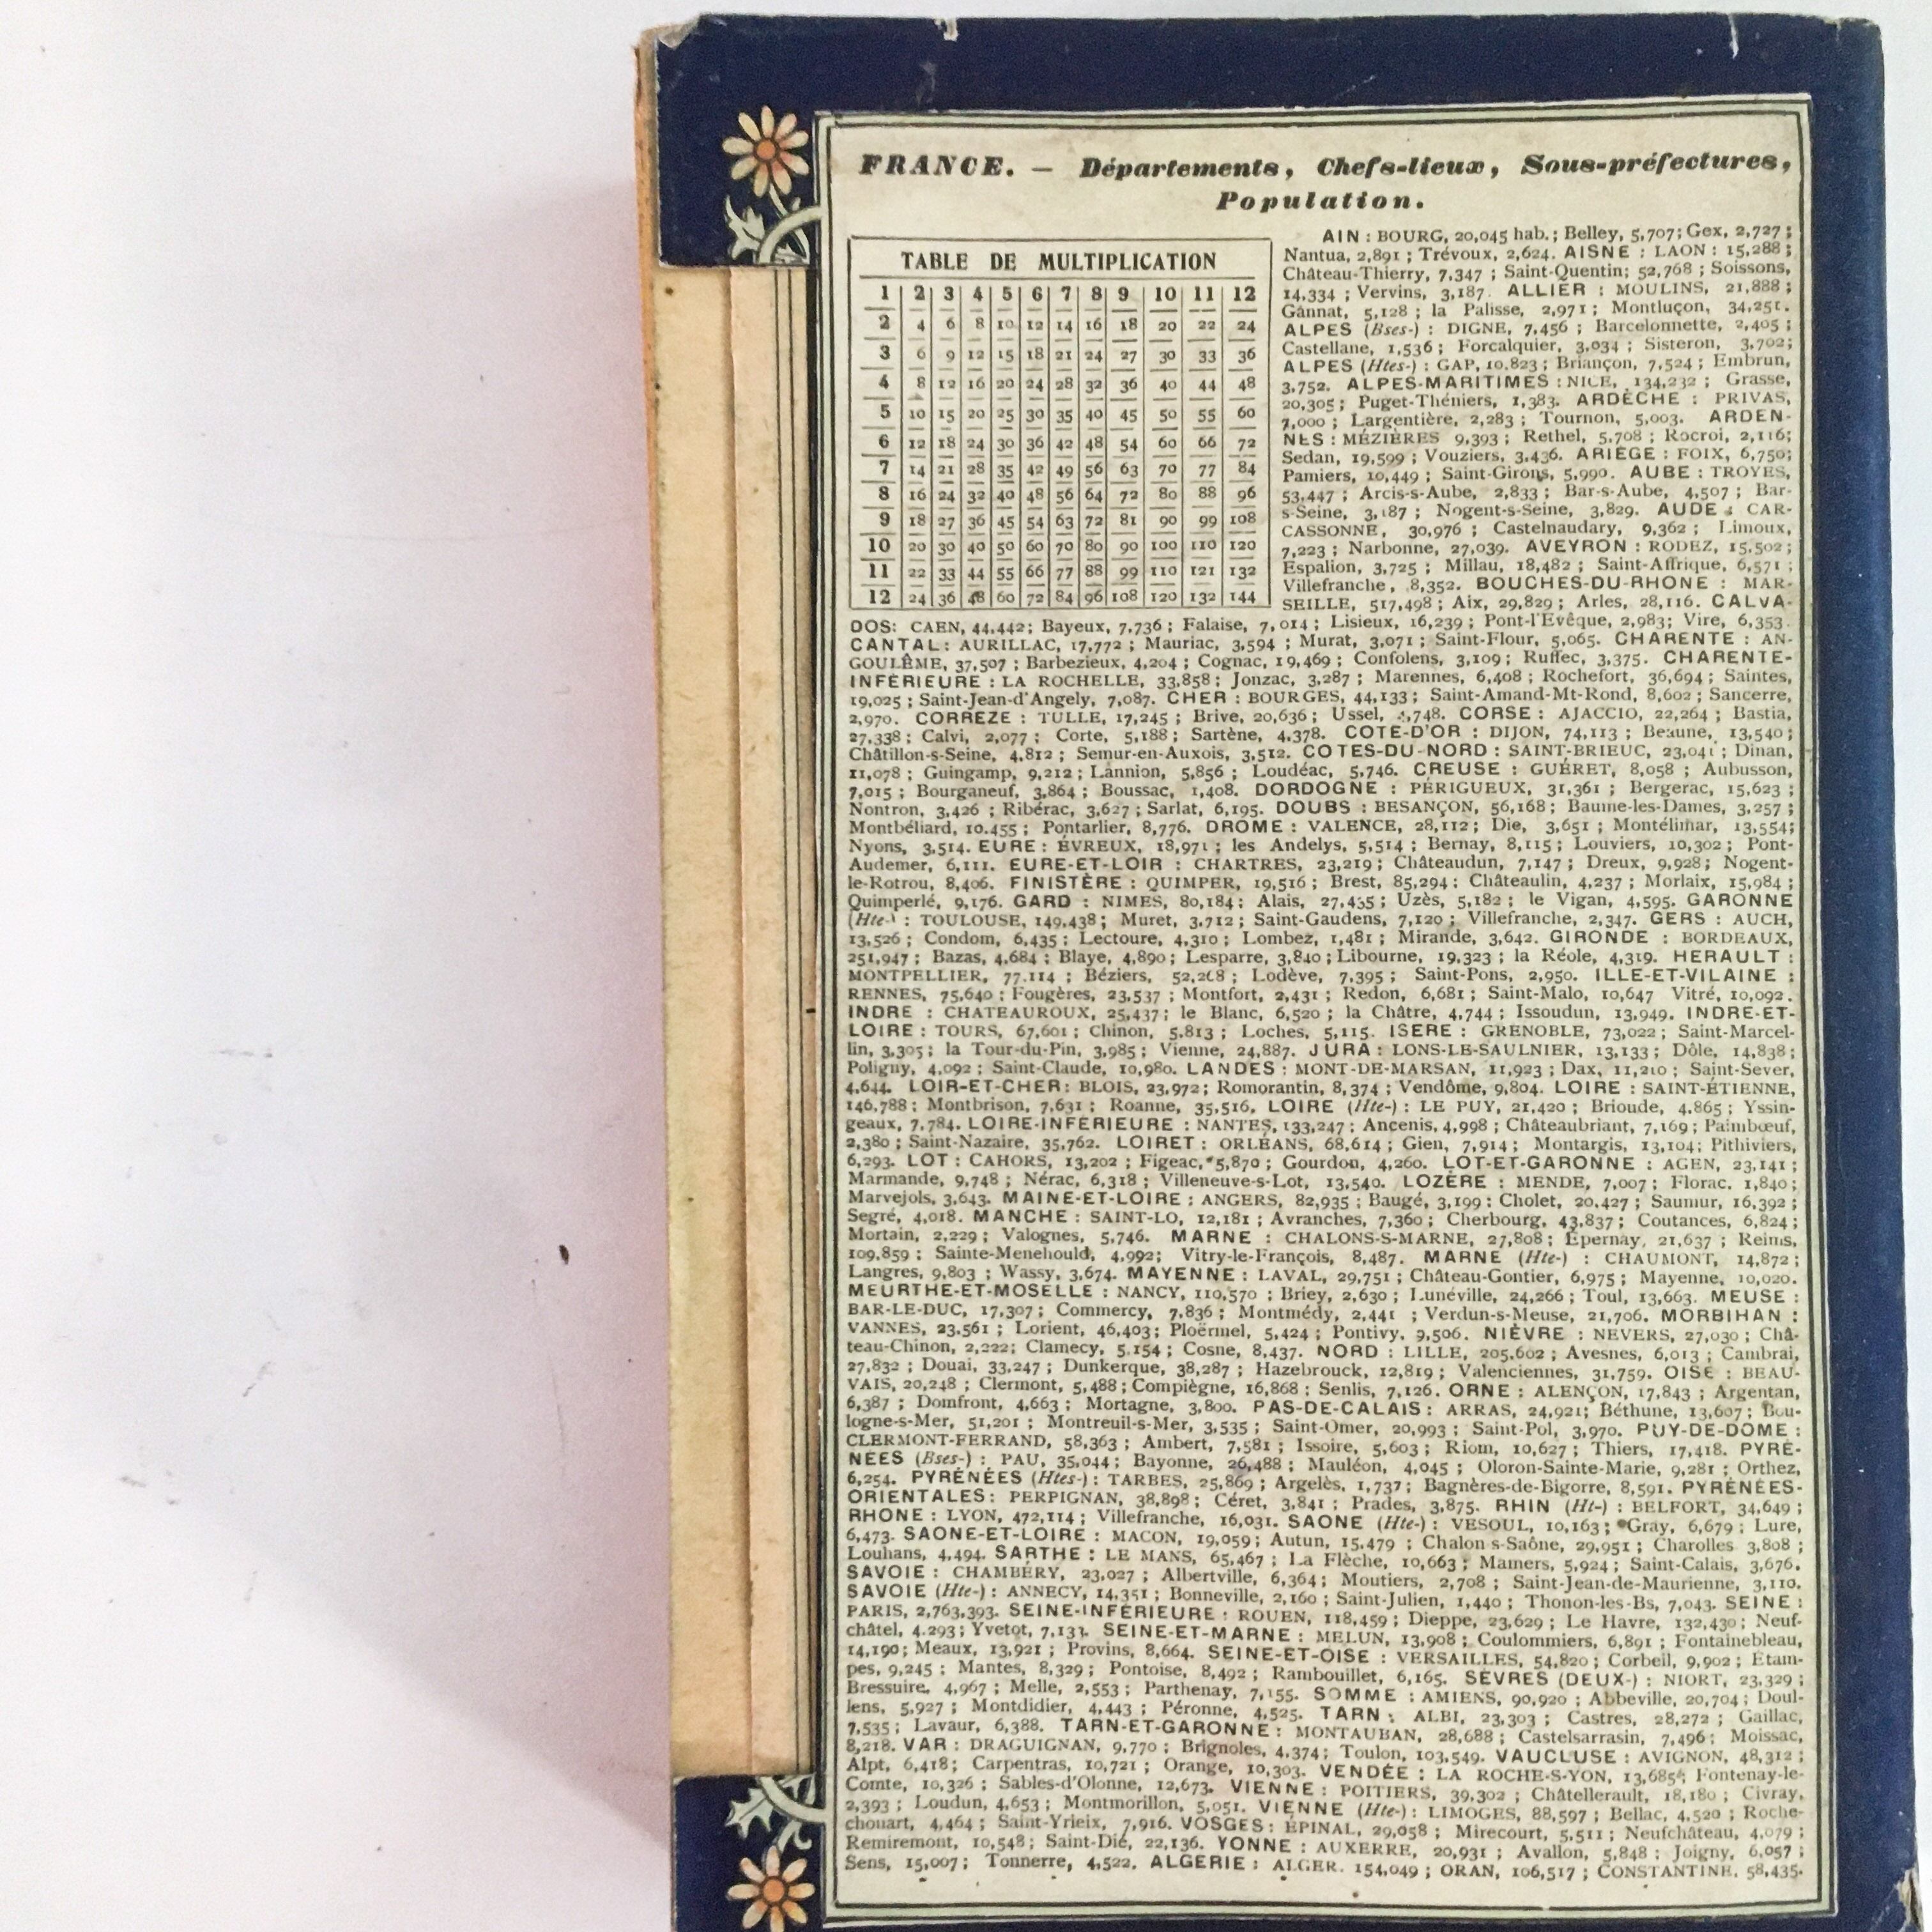 FRANCE. — Départements, Chefs-lieux, Sous-préfectures,
Population.
TABLE DE MULTIPLICATION
1 2 3 4 5 6 7 8 9 10 11 12
2 4 6 8 10 12 14 16 18 20 22 24
3 6 9 12 15 18 21 24 27 30 33 36
4 8 12 16 20 24 28 32 36 40 44 48
5 10 15 20 25 30 35 40 45 50 55 60
6 12 18 24 30 36 42 48 54 60 66 72
7 14 21 28 35 42 49 56 63 70 77 84
8 16 24 32 40 48 56 64 72 80 88 96
9 18 27 36 45 54 63 72 81 90 99 108
10 20 30 40 50 60 70 80 90 100 110 120
11 22 33 44 55 66 77 88 99 110 121 132
12 24 36 48 60 72 84 96 108 120 132 144
AIN : BOURG, 20,045 hab. ; Belley, 5,707 ; Gex, 2,727 ;
Nantua, 2,891 ; Trévoux, 2,624. AISNE : LAON : 15,288 ;
Château-Thierry, 7,347 ; Saint-Quentin; 52,768 ; Soissons,
14,334 ; Vervins, 3,187. ALLIER : MOULINS, 21,888 ;
Gannat, 5,128 ; la Palisse, 2,971 ; Montluçon, 34,251.
ALPES (Bses-) : DIGNE, 7,456 ; Barcelonnette, 2,405 ;
Castellane, 1,536 ; Forcalquier, 3,034 ; Sisteron, 3,702;
ALPES (Htes-) : GAP, 10,823 ; Briançon, 7,524 ; Embrun,
3,752. ALPES-MARITIMES : NICE, 134,232 ; Grasse,
20,305 ; Puget-Théniers, 1,383. ARDÈCHE : PRIVAS,
7,000 ; Largentière, 2,283 ; Tournon, 5,003. ARDEN-
NES : MÉZIÈRES 9,393 ; Rethel, 5,708 ; Rocroi, 2,116;
Sedan, 19,599 ; Vouziers, 3,436. ARIÈGE : FOIX, 6,750;
Pamiers, 10,449 ; Saint-Girons, 5,990. AUBE : TROYES,
53,447 ; Arcis-s-Aube, 2,833 ; Bar-s-Aube, 4,507 ; Bar-
s-Seine, 3,187 ; Nogent-s-Seine, 3,829. AUDE : CAR-
CASSONNE, 30,976 ; Castelnaudary, 9,362 ; Limoux,
7,223 ; Narbonne, 27,039. AVEYRON : RODEZ, 15,502 ;
Espalion, 3,725 ; Millau, 18,482 ; Saint-Affrique, 6,571 ;
Villefranche, 8,352. BOUCHES-DU-RHONE : MAR-
SEILLE, 517,498 ; Aix, 29,829 ; Arles, 28,116. CALVA-
DOS: CAEN, 44,442; Bayeux, 7,736 ; Falaise, 7,014 ; Lisieux, 16,239 ; Pont-l'Evêque, 2,983; Vire, 6,353.
CANTAL : AURILLAC, 17,772 ; Mauriac, 3,594 ; Murat, 3,071 ; Saint-Flour, 5,065. CHARENTE : AN-
GOULÊME, 37,507 ; Barbezieux, 4,204 ; Cognac, 19,469 ; Confolens, 3,109 ; Ruffec, 3,375. CHARENTE-
INFÉRIEURE : LA ROCHELLE, 33,858 ; Jonzac, 3,287 ; Marennes, 6,408 ; Rochefort, 36,694 ; Saintes,
19,025 ; Saint-Jean-d'Angely, 7,087. CHER : BOURGES, 44,133 ; Saint-Amand-Mt-Rond, 8,602 ; Sancerre,
2,970. CORREZE : TULLE, 17,245 ; Brive, 20,636 ; Ussel, CORSE : AJACCIO, 22,264 ; Bastia,
27,338 ; Calvi, 2,077 ; Corte, 5,188 ; Sartène, 4,378. COTE-D'OR : DIJON, 74,113 ; Beaune, 13,540 ;
Châtillon-s-Seine, 4,812 ; Semur-en-Auxois, 3,512. COTES-DU-NORD : SAINT-BRIEUC, 23,041 ; Dinan,
11,078 ; Guingamp, 9,212 ; Lannion, 5,856 ; Loudéac, 5,746. CREUSE : GUÉRET, 8,058 ; Aubusson,
7,015 ; Bourganeuf, 3,864 ; Boussac, 1,408. DORDOGNE : PÉRIGUEUX, 31,361 ; Bergerac, 15,623 ;
Nontron, 3,426 ; Ribérac, 3,627 ; Sarlat, 6,195. DOUBS : BESANÇON, 56,168 ; Baume-les-Dames, 3,257 ;
Montbéliard, 10,455 ; Pontarlier, 8,776. DROME : VALENCE, 28,112 ; Die, 3,651 ; Montélimar, 13,554;
Nyons, 3,514. EURE : ÉVREUX, 18,971 ; les Andelys, 5,514 ; Bernay, 8,115 ; Louviers, 10,302 ; Pont-
Audemer, 6,111. EURE-ET-LOIR : CHARTRES, 23,219 ; Châteaudun, 7,147 ; Dreux, 9,928 ; Nogent-
le-Rotrou, 8,406. FINISTÈRE : QUIMPER, 19,516 ; Brest, 85,294 : Châteaulin, 4,237 ; Morlaix, 15,984 ;
Quimperlé, 9,176. GARD : NIMES, 80,184 : Alais, 27,435 ; Uzès, 5,182 ; le Vigan, 4,595. GARONNE
(Hte-) : TOULOUSE, 149,438 ; Muret, 3,712 ; Saint-Gaudens, 7,120 ; Villefranche, 2,347. GERS : AUCH,
13,526 ; Condom, 6,435 ; Lectoure, 4,310 ; Lombez, 1,481 ; Mirande, 3,642. GIRONDE : BORDEAUX,
251,947 ; Bazas, 4,684 ; Blaye, 4,890 ; Lesparre, 3,840 ; Libourne, 19,323 ; la Réole, 4,319. HERAULT :
MONTPELLIER, 77,114 ; Béziers, 52,268 ; Lodève, 7,395 ; Saint-Pons, 2,950. ILLE-ET-VILAINE :
RENNES, 75,640 ; Fougères, 23,537 ; Montfort, 2,431 ; Redon, 6,681 ; Saint-Malo, 10,647 Vitré, 10,092.
INDRE : CHATEAUROUX, 25,437 ; le Blanc, 6,520 ; la Châtre, 4,744 ; Issoudun, 13,949. INDRE-ET-
LOIRE : TOURS, 67,601 ; Chinon, 5,813 ; Loches, 5,115. ISERE : GRENOBLE, 73,022 ; Saint-Marcel-
lin, 3,305 ; la Tour-du-Pin, 3,985 ; Vienne, 24,887. JURA : LONS-LE-SAULNIER, 13,133 ; Dôle, 14,838 ;
Poligny, 4,092 ; Saint-Claude, 10,980. LANDES : MONT-DE-MARSAN, 11,923 ; Dax, 11,210 ; Saint-Sever,
4,644. LOIR-ET-CHER : BLOIS, 23,972 ; Romorantin, 8,374 ; Vendôme, 9,804. LOIRE : SAINT-ÉTIENNE,
146,788 ; Montbrison, 7,631 ; Roanne, 35,516, LOIRE (Hte-) : LE PUY, 21,420 ; Brioude, 4,865 ; Yssin-
geaux, 7,784. LOIRE-INFÉRIEURE : NANTES, 133,247 ; Ancenis, 4,998 ; Châteaubriant, 7,169 ; Paimbœuf,
2,380 ; Saint-Nazaire, 35,762. LOIRET : ORLÉANS, 68,614 ; Gien, 7,914 ; Montargis, 13,104 ; Pithiviers,
6,293. LOT : CAHORS, 13,202 ; Figeac, 5,870 ; Gourdon, 4,260. LOT-ET-GARONNE : AGEN, 23,141 ;
Marmande, 9,748 ; Nérac, 6,318 ; Villeneuve-s-Lot, 13,540. LOZÈRE : MENDE, 7,007 ; Florac, 1,840 ;
Marvejols, 3,643. MAINE-ET-LOIRE : ANGERS, 82,935 ; Baugé, 3,199 : Cholet, 20,427 ; Saumur, 16,392 ;
Segré, 4,018. MANCHE : SAINT-LO, 12,181 ; Avranches, 7,360 ; Cherbourg, 43,837 ; Coutances, 6,824 ;
Mortain, 2,229 ; Valognes, 5,746. MARNE : CHALONS-S-MARNE, 27,808 ; Epernay, 21,637 ; Reims,
109,859 ; Sainte-Menehould, 4,992; Vitry-le-François, 8,487. MARNE (Hte-) : CHAUMONT, 14,872 ;
Langres, 9,803 ; Wassy, 3,674. MAYENNE : LAVAL, 29,751 ; Château-Gontier, 6,975 ; Mayenne, 10,020.
MEURTHE-ET-MOSELLE : NANCY, 110,570 ; Briey, 2,630 ; Lunéville, 24,266 ; Toul, 13,663. MEUSE :
BAR-LE-DUC, 17,307 ; Commercy, 7,836 ; Montmédy, 2,441 ; Verdun-s-Meuse, 21,706. MORBIHAN :
VANNES, 23,561 ; Lorient, 46,403 ; Ploërmel, 5,424 ; Pontivy, 9,506. NIÈVRE : NEVERS, 27,030 ; Châ-
teau-Chinon, 2,222; Clamecy, 5,154 ; Cosne, 8,437. NORD : LILLE, 205,602 ; Avesnes, 6,013 ; Cambrai,
27,832 ; Douai, 33,247 ; Dunkerque, 38,287 ; Hazebrouck, 12,819 ; Valenciennes, 31,759. OISE : BEAU-
VAIS, 20,248 ; Clermont, 5,488 ; Compiègne, 16,868 ; Senlis, 7,126. ORNE : ALENÇON, 17,843 ; Argentan,
6,387 ; Domfront, 4,663 ; Mortagne, 3,800. PAS-DE-CALAIS : ARRAS, 24,921; Béthune, 13,607 ; Bou-
logne-s-Mer, 51,201 ; Montreuil-s-Mer, 3,535 ; Saint-Omer, 20,993 ; Saint-Pol, 3,970. PUY-DE-DOME :
CLERMONT-FERRAND, 58,363 ; Ambert, 7,581 ; Issoire, 5,603 ; Riom, 10,627 ; Thiers, 17,418. PYRÉ-
NÉES (Bses-) : PAU, 35,044 ; Bayonne, 26,488 ; Mauléon, 4,045 ; Oloron-Sainte-Marie, 9,281 ; Orthez,
6,254. PYRÉNÉES (Htes-) : TARBES, 25,869 ; Argelès, 1,737 ; Bagnères-de-Bigorre, 8,591. PYRÉNÉES-
ORIENTALES : PERPIGNAN, 38,898 ; Céret, 3,841 ; Prades, 3,875. RHIN (Ht-) : BELFORT, 34,649 ;
RHONE : LYON, 472,114 ; Villefranche, 16,031. SAONE (Hte-) : VESOUL, 10,163 ; Gray, 6,679 ; Lure,
6,473. SAONE-ET-LOIRE : MACON, 19,059 ; Autun, 15,479 ; Chalon s-Saône, 29,951 ; Charolles 3,808 ;
Louhans, 4,494. SARTHE : LE MANS, 65,467 ; La Flèche, 10,663 ; Mamers, 5,924 ; Saint-Calais, 3,676.
SAVOIE : CHAMBÉRY, 23,027 ; Albertville, 6,364 ; Moutiers, 2,708 ; Saint-Jean-de-Maurienne, 3,110.
SAVOIE (Hte-) : ANNECY, 14,351 ; Bonneville, 2,160 ; Saint-Julien, 1,440 ; Thonon-les-Bs, 7,043. SEINE :
PARIS, 2,763,393. SEINE-INFÉRIEURE : ROUEN, 118,459 ; Dieppe, 23,629 ; Le Havre, 132,430 ; Neuf-
châtel, 4,293 ; Yvetot, 7,133. SEINE-ET-MARNE : MELUN, 13,908 ; Coulommiers, 6,891 ; Fontainebleau,
14,190 ; Meaux, 13,921 ; Provins, 8,664. SEINE-ET-OISE : VERSAILLES, 54,820 ; Corbeil, 9,902 ; Etam-
pes, 9,245 ; Mantes, 8,329 ; Pontoise, 8,492 ; Rambouillet, 6,165. SÈVRES (DEUX-) : NIORT, 23,329 ;
Bressuire, 4,967 ; Melle, 2,553 ; Parthenay, 7,155. SOMME : AMIENS, 90,920 ; Abbeville, 20,704 ; Doul-
lens, 5,927 ; Montdidier, 4,443 ; Péronne, 4,525. TARN : ALBI, 23,303 ; Castres, 28,272 ; Gaillac,
7,535 ; Lavaur, 6,388. TARN-ET-GARONNE : MONTAUBAN, 28,688 ; Castelsarrasin, 7,496 ; Moissac,
8,218. VAR : DRAGUIGNAN, 9,770 ; Brignoles, 4,374 ; Toulon, 103,549. VAUCLUSE : AVIGNON, 48,312 ;
Alpt, 6,418 ; Carpentras, 10,721 ; Orange, 10,303. VENDÉE : LA ROCHE-S-YON, 13,685 ; Fontenay-le-
Comte, 10,326 ; Sables-d'Olonne, 12,673. VIENNE : POITIERS, 39,302 ; Châtellerault, 18,180 ; Civray,
2,393 ; Loudun, 4,653 ; Montmorillon, 5,051. VIENNE (Hte-) : LIMOGES, 88,597 ; Bellac, 4,520 ; Roche-
chouart, 4,464 ; Saint-Yrieix, 7,916. VOSGES : ÉPINAL, 29,058 ; Mirecourt, 5,511 ; Neufchâteau, 4,079 ;
Remiremont, 10,548 ; Saint-Dié, 22,136. YONNE : AUXERRE, 20,931 ; Avallon, 5,848 ; Joigny, 6,057 ;
Sens, 15,007 ; Tonnerre, 4,522. ALGERIE : ALGER, 154,049 ; ORAN, 106,517 ; CONSTANTINE, 58,435.